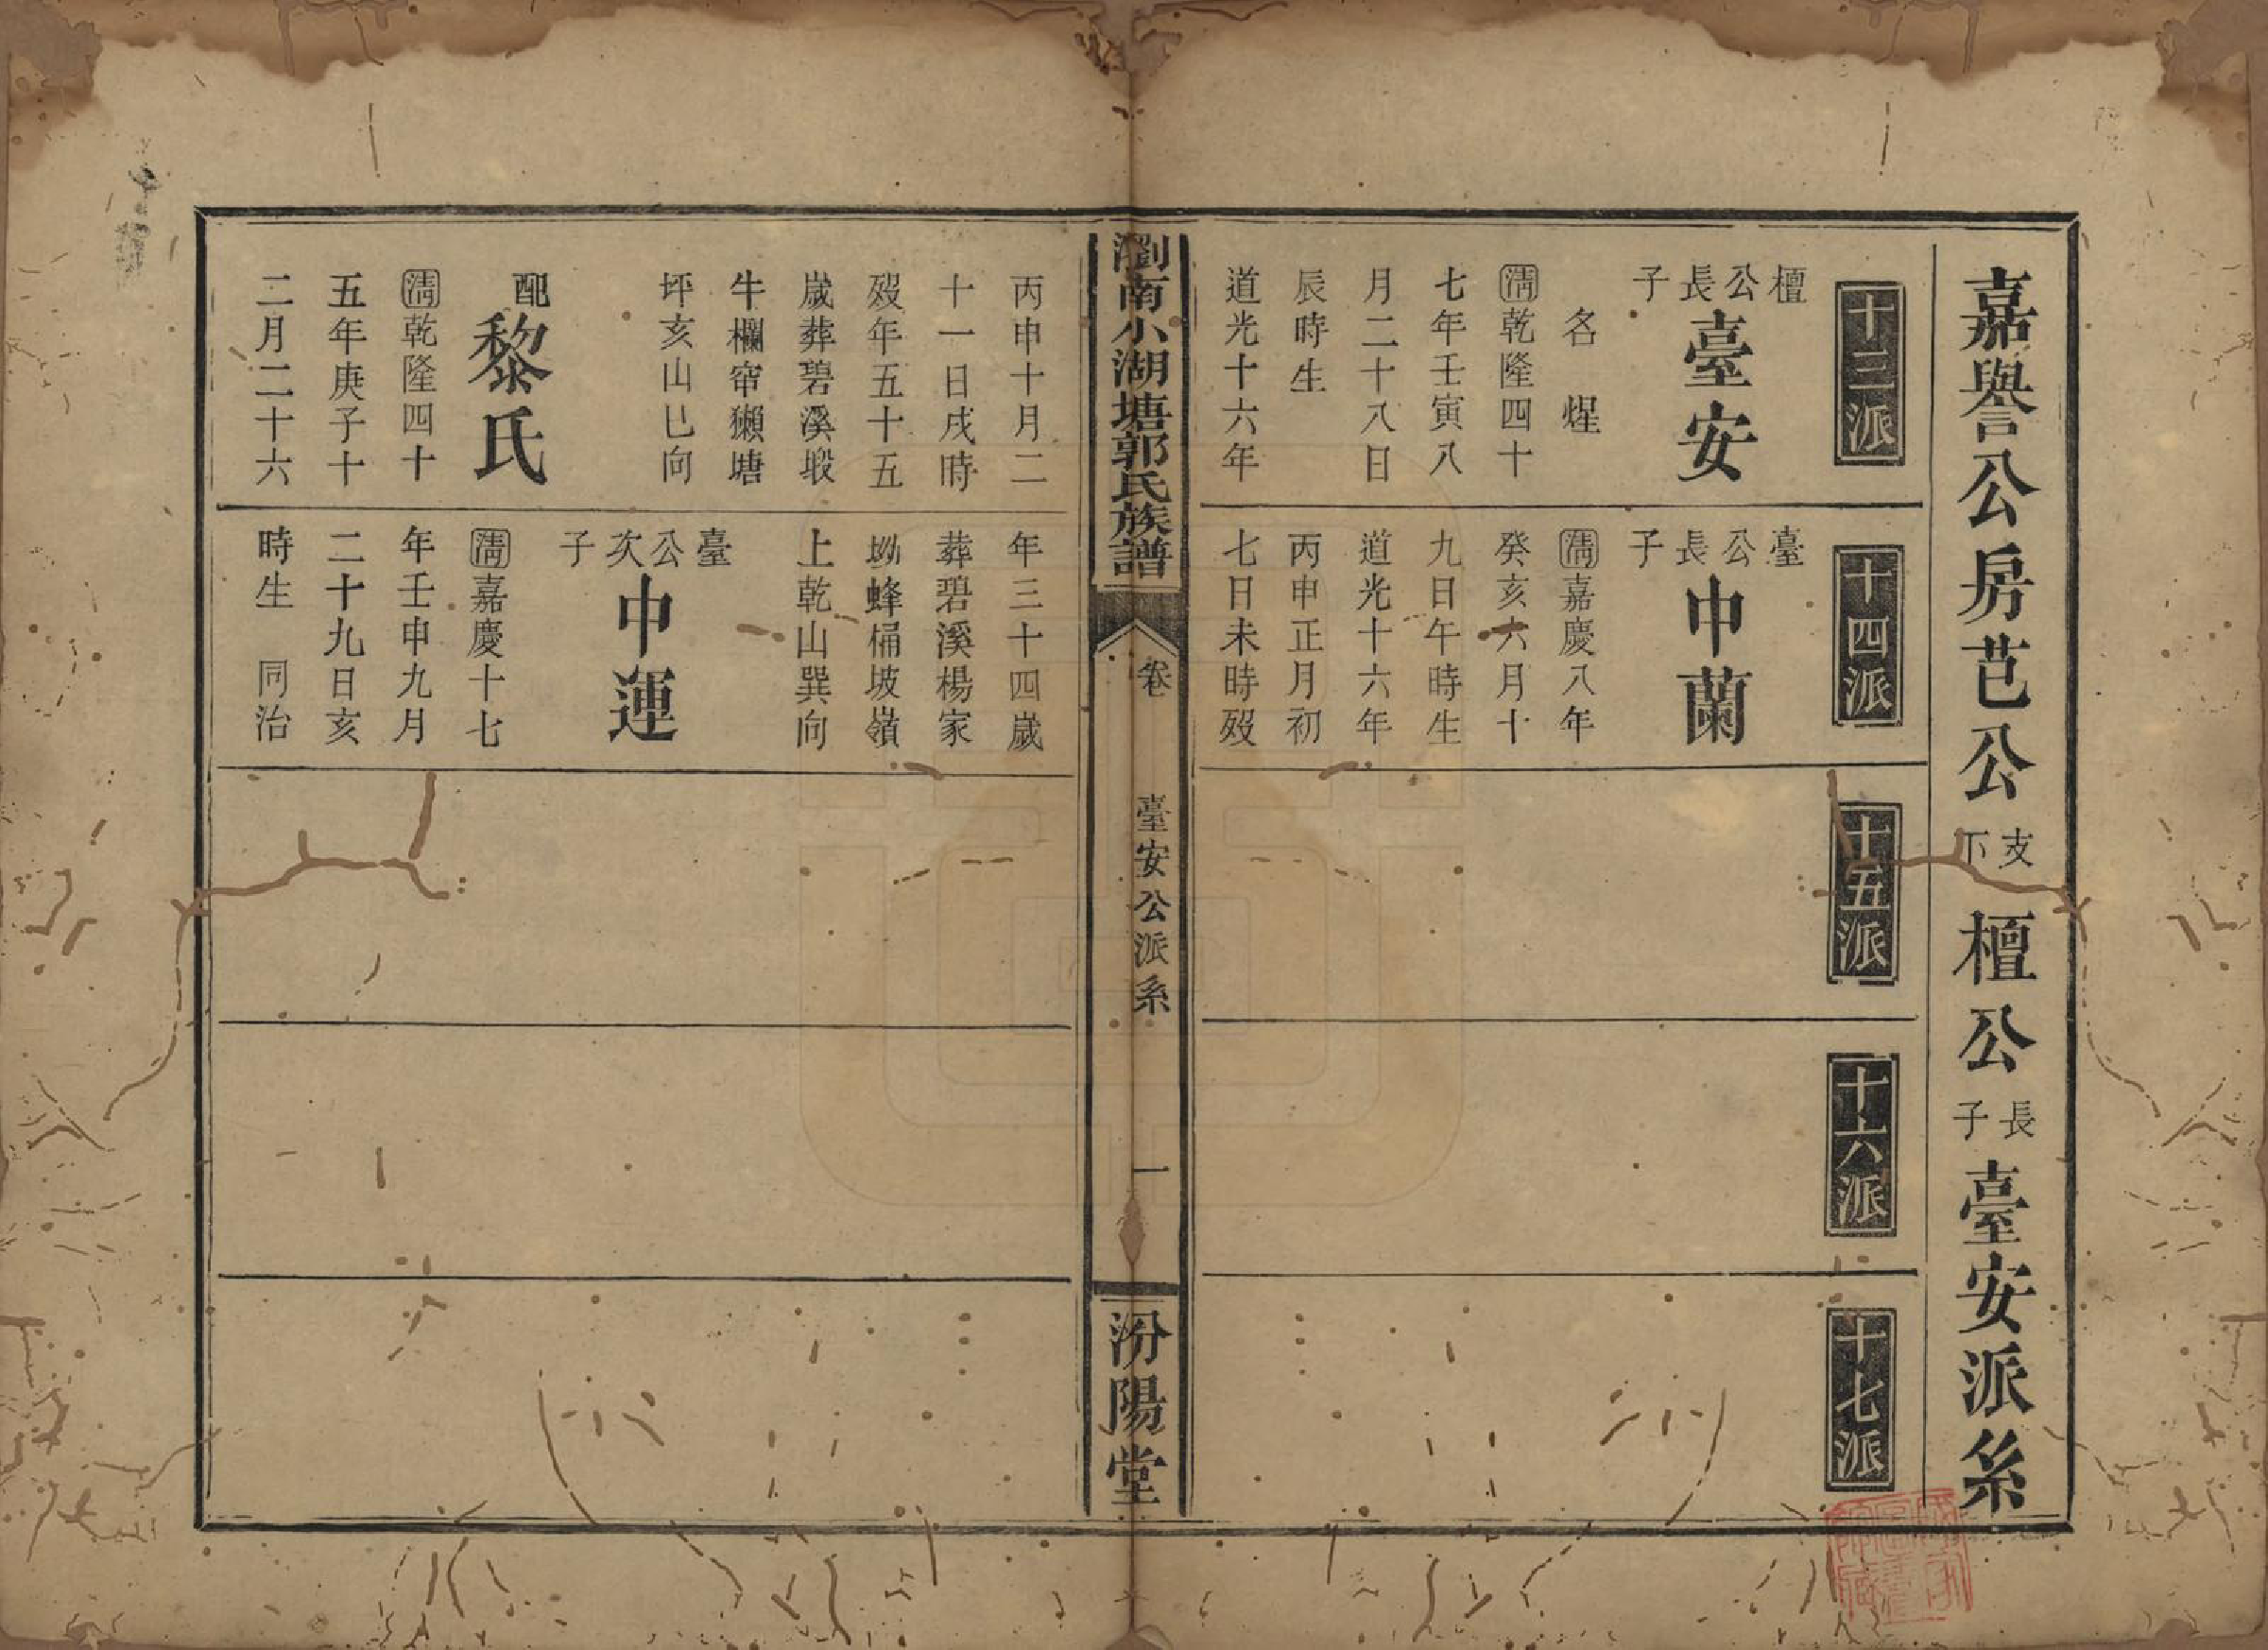 嘉譽公房芑公支下檀公長子臺安派系
十三派
檀公長子
臺安
名煋
清乾隆四十
七年壬寅八
月二十八日
辰時生
道光十六年
十四派
臺公長子
中蘭
清嘉慶八年
癸亥六月十
九日午時生
道光十六年
丙申正月初
七日未時歿
十五派
十六派
十七派
瀏南小湖塘郭氏族譜
卷
臺安公派系
一
汾陽堂
丙申十月二
十一日戌時
歿年五十五
歲葬碧溪塅
牛欄窂獺塘
坪亥山巳向
配
黎氏
清乾隆四十
五年庚子十
二月二十六
年三十四歲
葬碧溪楊家
坳蜂桶坡嶺
上乾山巽向
臺公次子
中運
清嘉慶十七
年壬申九月
二十九日亥
時生 同治